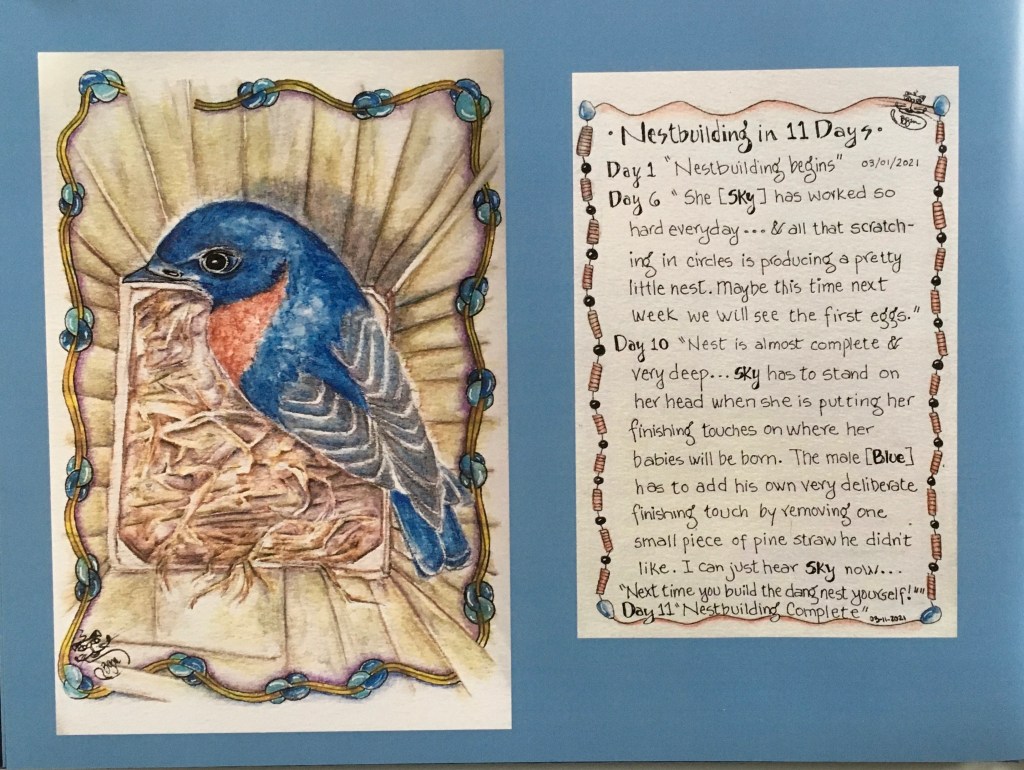 • Nestbuilding in 11 Days •
Day 1 "Nestbuilding begins" 03/01/2021
Day 6 "She [Sky] has worked so
hard everyday... & all that scratch-
ing in circles is producing a pretty
little nest. Maybe this time next
week we will see the first eggs."
Day 10 "Nest is almost complete &
very deep... Sky has to stand on
her head when she is putting her
finishing touches on where her
babies will be born. The male [Blue]
has to add his own very deliberate
finishing touch by removing one
small piece of pine straw he didn't
like. I can just hear Sky now...
"Next time you build the dang nest yourself!""
Day 11 "Nestbuilding Complete" 03-11-2021